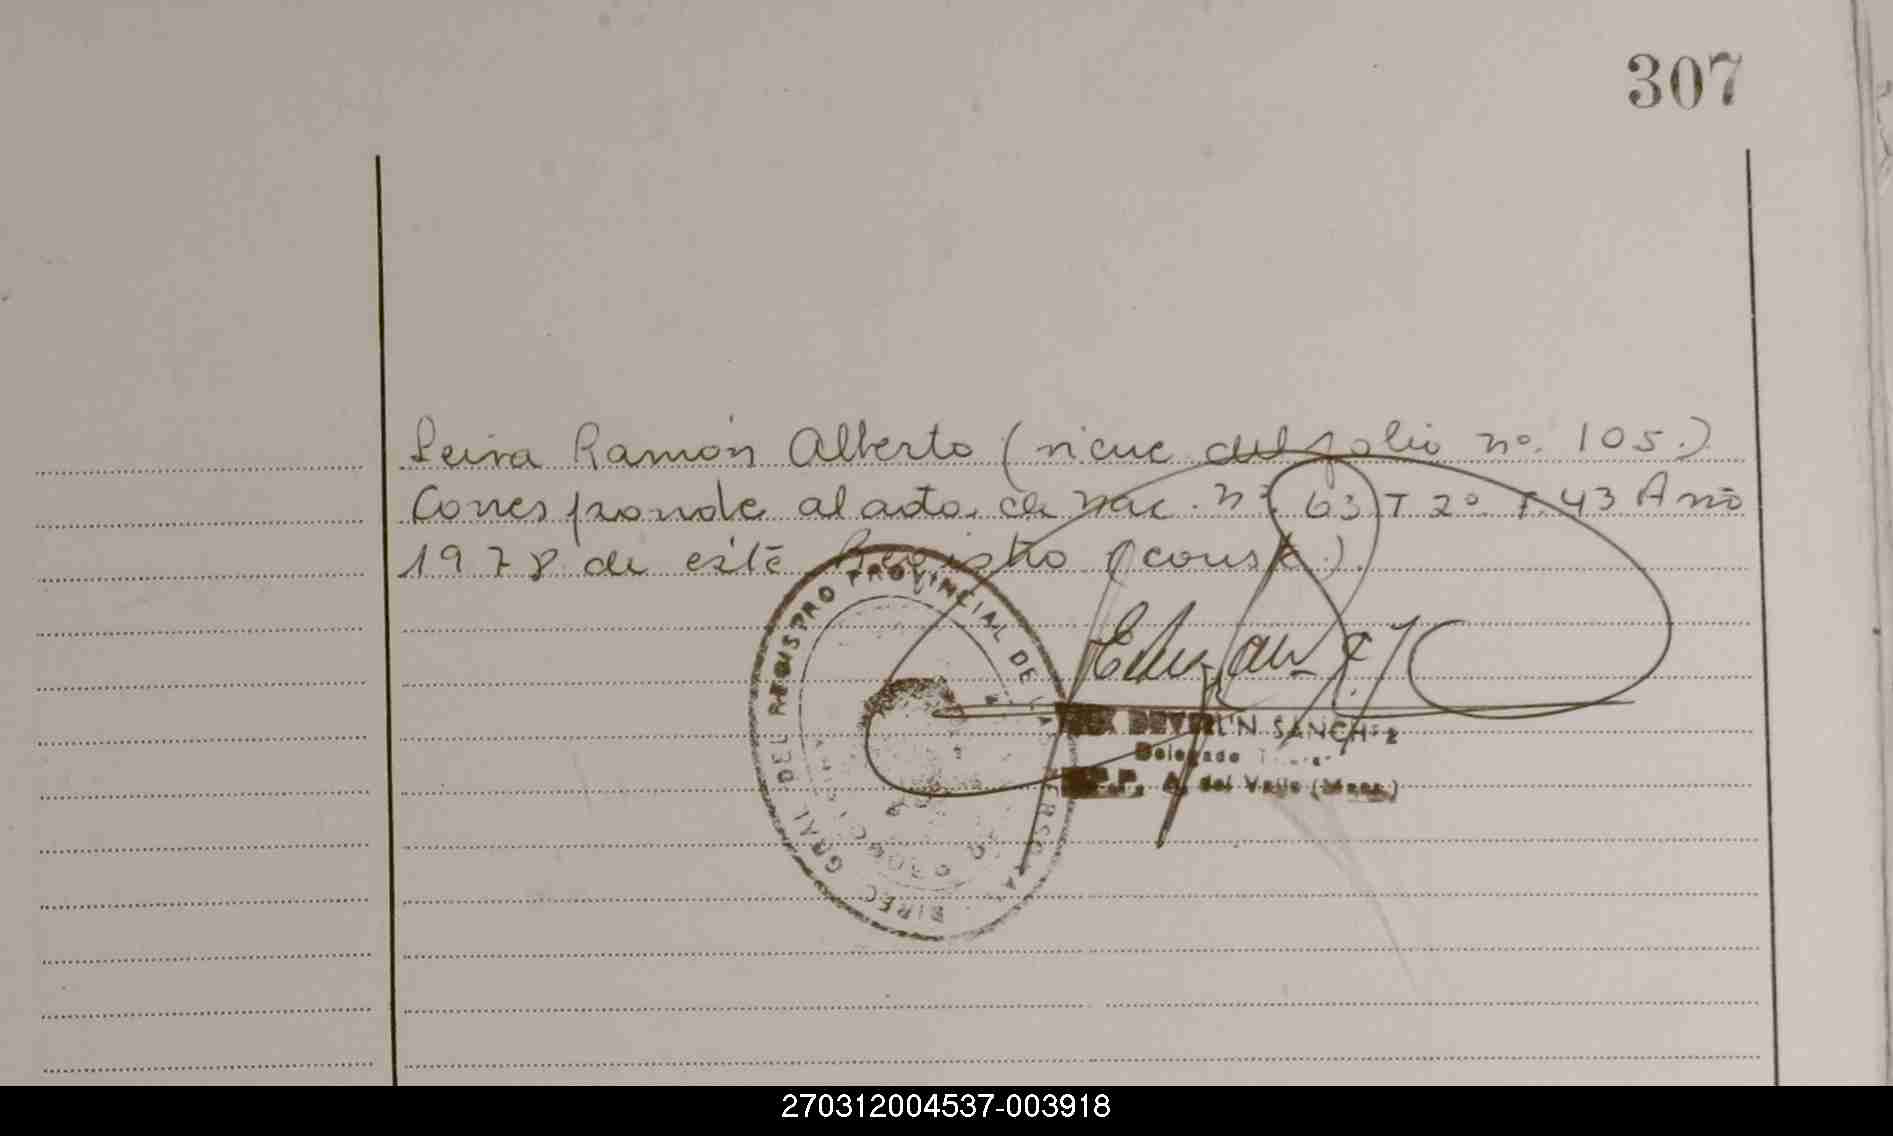 307
Leiva Ramón Alberto (viene del folio nº. 105.)
Corresponde al acta de nac. nº. 63 T 2º. F. 43 Año
1978 de este Registro (conste).
DIREC GRAL DEL REGISTRO PROVINCIAL DE LAS PERSONAS
SANCHEZ
Delegado
A. del Valle (Mnes.)
270312004537-003918